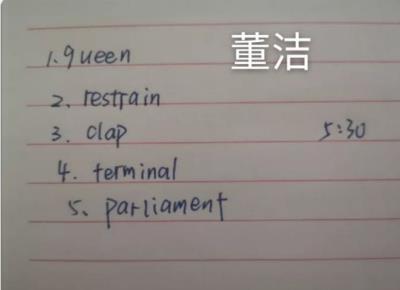 1. queen 董洁
2. restrain
3. clap 5:30
4. terminal
5. parliament